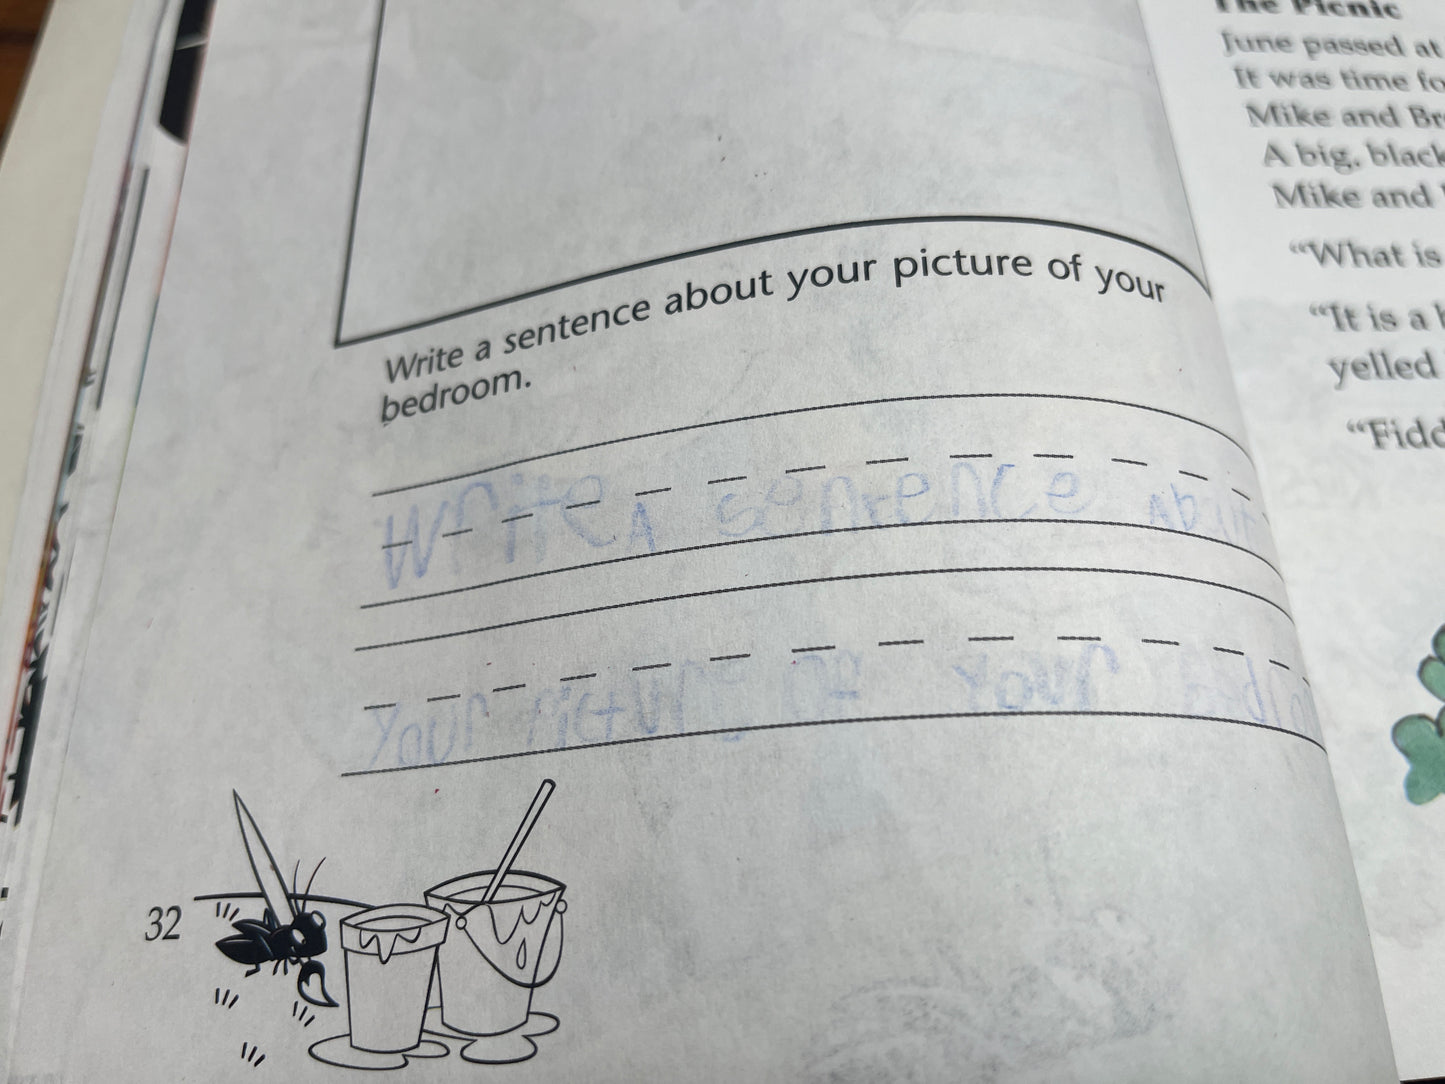 Write a sentence about your picture of your
bedroom.
Write A sentence About
Your of Your
32
The Picnic
June passed at
It was time
Mike and
A big, black
Mike and
“What is
“It is a
yelled